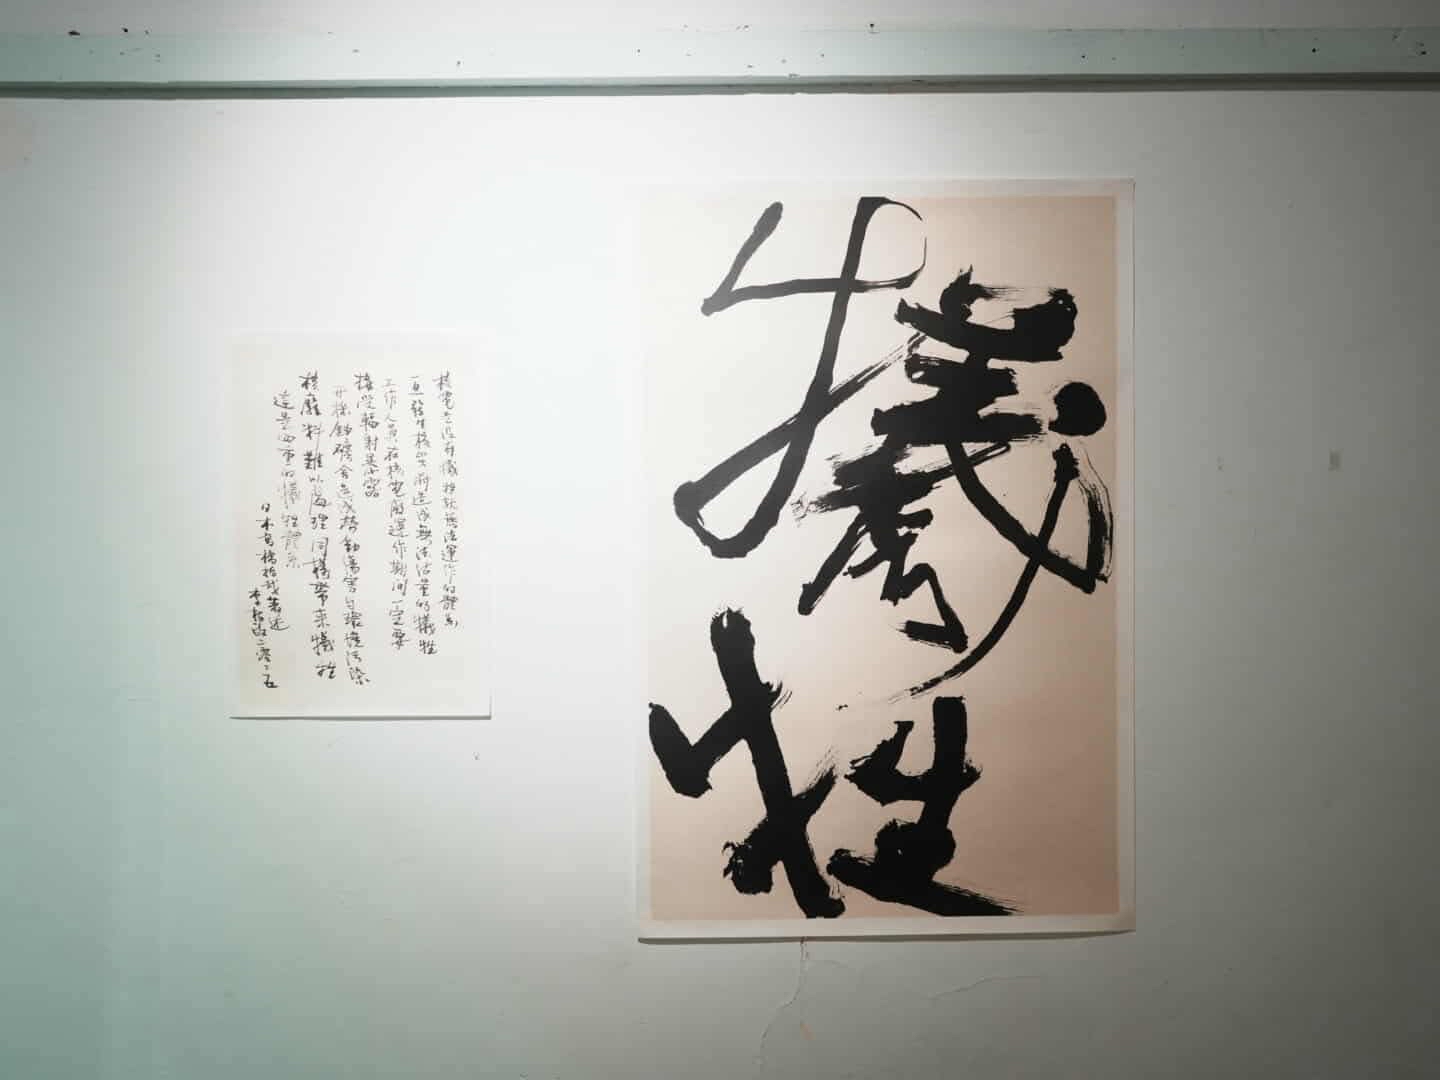 核電是沒有犧牲就無法運作的體系
一旦發生核災將造成無法估量的犧牲
工作人員在核電廠運作期間一定要
接受輻射暴露
開採鈾礦會造成勞動傷害與環境污染
核廢料難以處理同樣帶來犧牲
這是四重的犧牲體系
日本高橋哲哉著述
二零二五
犧牲